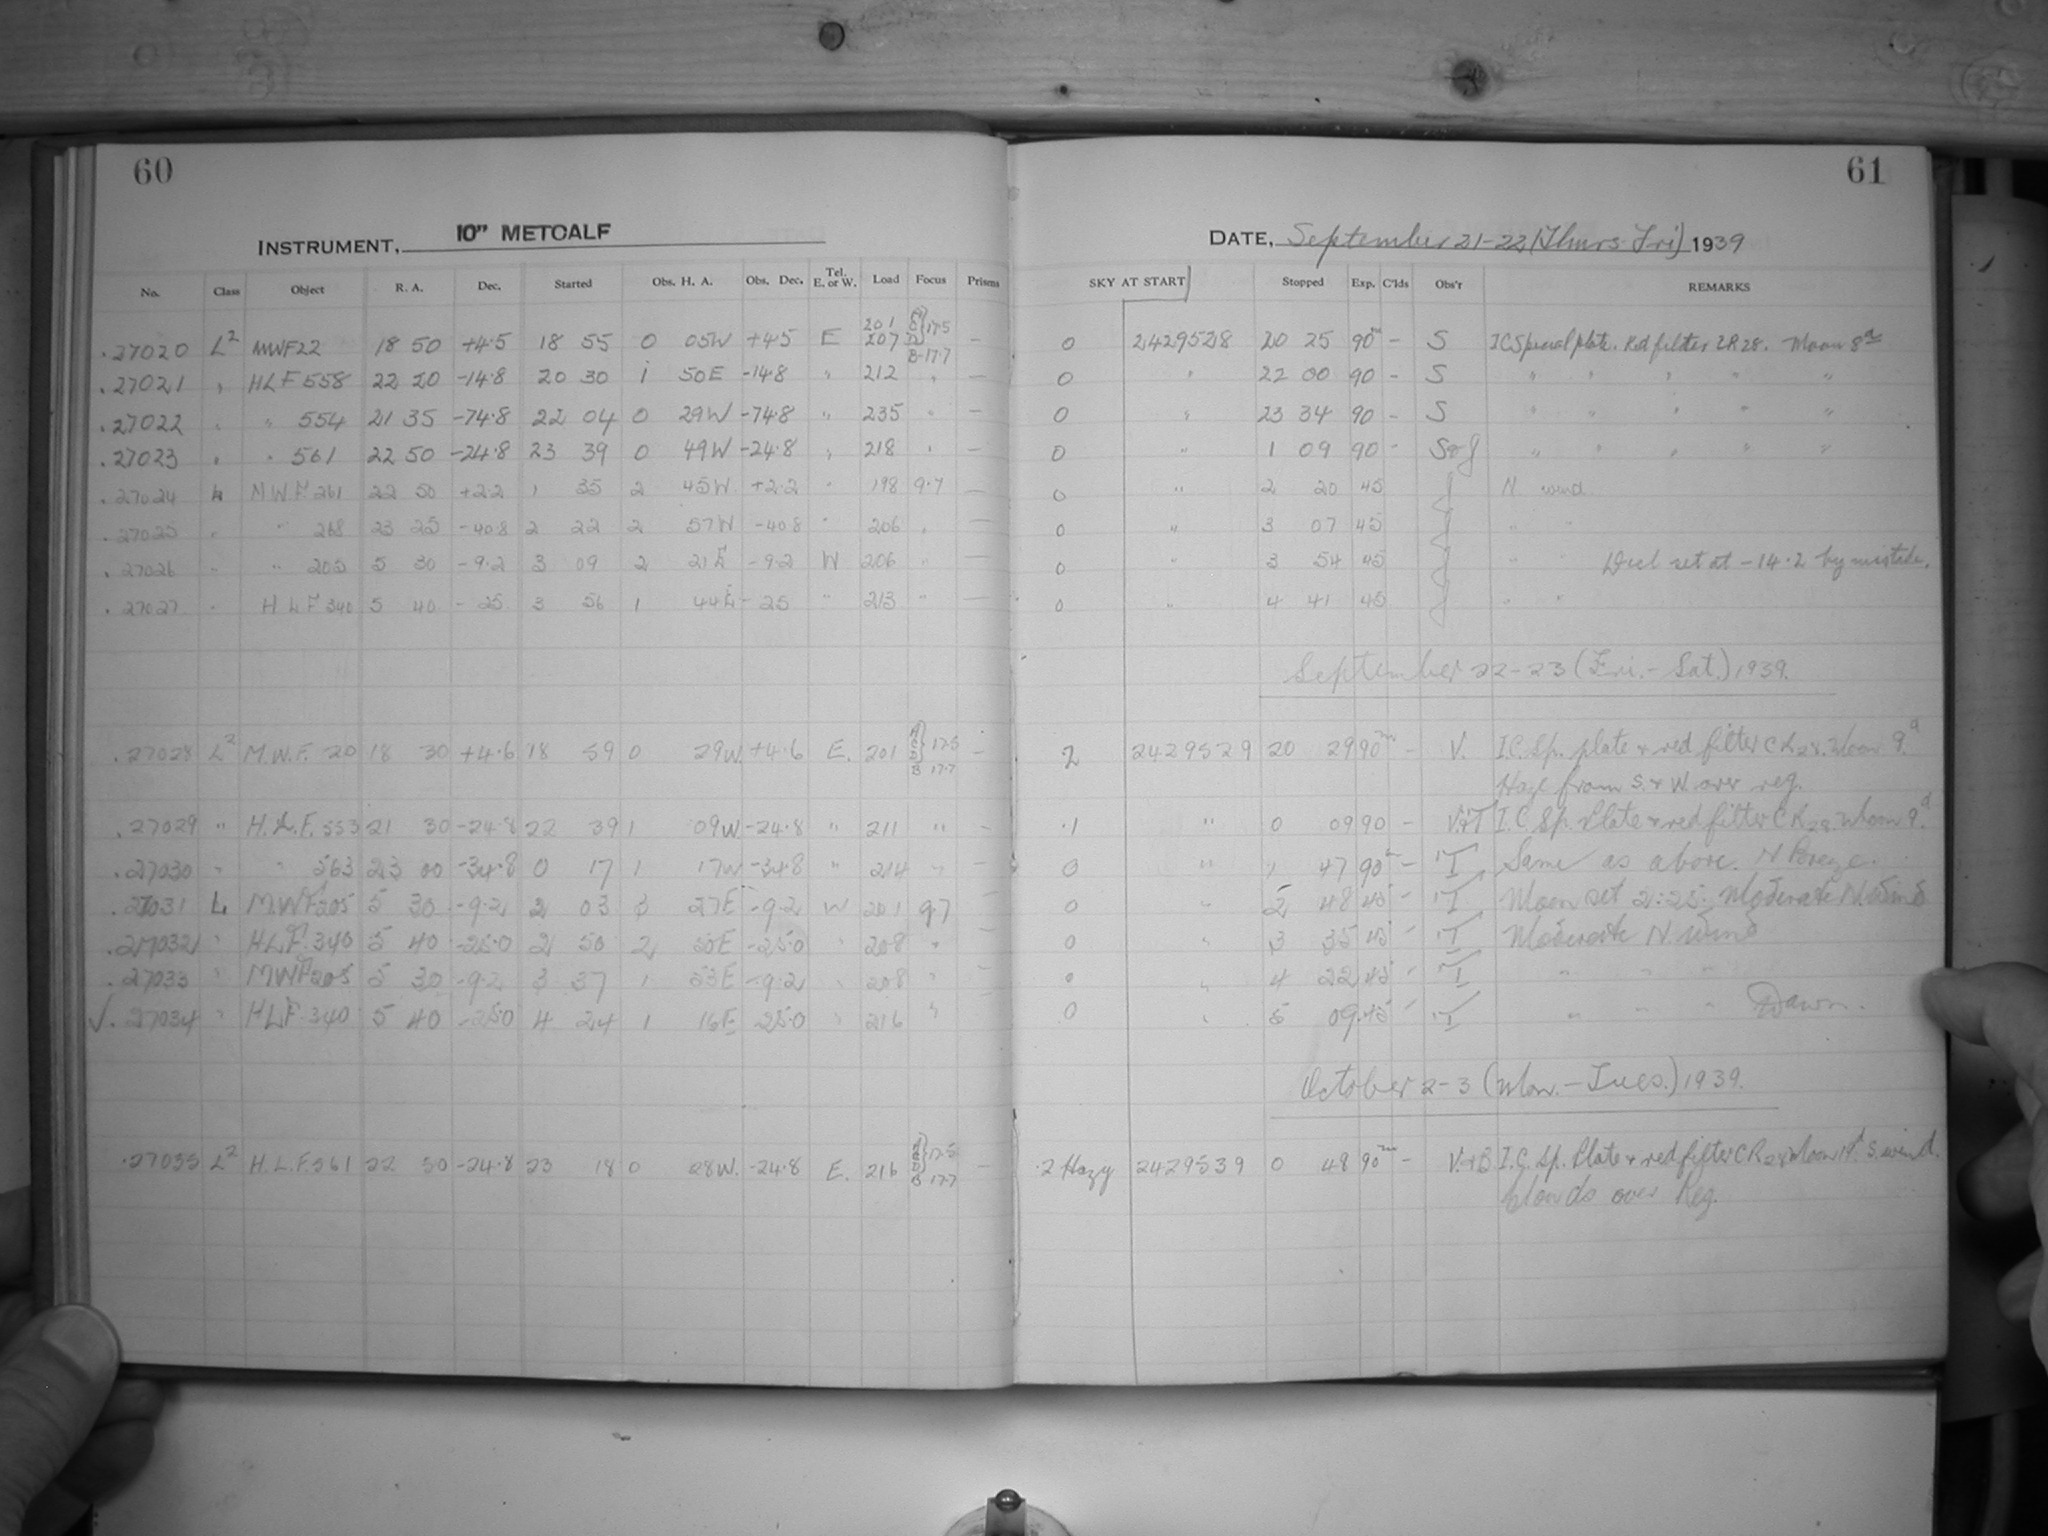 60
INSTRUMENT, 10" METCALF
No. Class Object R. A. Dec. Started Obs. H. A. Obs. Dec. Tel. E. or W. Load Focus Prisms
.27020 L² MWF22 18 50 +4.5 18 55 0 05W +4.5 E 201 207 17.5 B-17.7 —
.27021 " HLF 558 22 20 -14.8 20 30 1 50E -14.8 " 212 " —
.27022 " " 554 21 35 -74.8 22 04 0 29W -74.8 " 235 " —
.27023 " " 561 22 50 -24.8 23 39 0 49W -24.8 " 218 " —
.27024 L M.W.F. 261 22 50 +2.2 1 35 2 45W +2.2 " 198 9.7 —
.27025 " " 268 23 25 -40.8 2 22 2 57W -40.8 " 206 " —
.27026 " " 205 5 30 -9.2 3 09 2 21E -9.2 W 206 " —
.27027 " HLF 340 5 40 -25 3 56 1 44E -25 " 213 " —
.27028 L² M.W.F. 20 18 30 +4.6 18 59 0 29W +4.6 E. 201 17.5 B 17.7 —
.27029 " H.L.F. 553 21 30 -24.8 22 39 1 09W -24.8 " 211 " —
.27030 " " 563 23 00 -34.8 0 17 1 17W -34.8 " 214 " —
.27031 L MWF205 5 30 -9.2 2 03 3 27E -9.2 W 201 9.7 —
.27032 " HLF. 340 5 40 -25.0 2 50 2 50E -25.0 " 208 " —
.27033 " MWF205 5 30 -9.2 3 37 1 53E -9.2 " 208 " —
✓. 27034 " HLF. 340 5 40 -25.0 4 24 1 16E -25.0 " 216 "
.27035 L² H.L.F. 561 22 50 -24.8 23 18 0 28W. -24.8 E. 216 17.5 B 17.7 —
61
DATE, September 21-22 (Thurs-Fri) 1939
SKY AT START Stopped Exp. C'lds Obs'r REMARKS
0 2429528 20 25 90m — S IC Special plate. Red filter CR28. Moon 8d
0 " 22 00 90 — S " " " " "
0 " 23 34 90 — S " " " " "
0 " 1 09 90 - S&J " " " " "
0 " 2 20 45 J N wind
0 " 3 07 45 J " "
0 " 3 54 45 J " " Decl set at -14.2 by mistake.
0 " 4 41 45 J " "
September 22-23 (Fri.-Sat.) 1939.
2 2429529 20 29 90m — V. I.C. Sp. plate & red filter CR28. Moon 9.d
Haze from S. & W. over reg.
.1 " 0 09 90 — V.&T I.C. Sp. Plate & red filter CR28. Moon 9.d
0 " 1 47 90m — T Same as above. N Breeze.
0 " 2 48 45 - T Moon set 2:25. Moderate N. Wind
0 " 3 35 45 - T Moderate N. Wind
0 " 4 22 45 - T " " "
0 " 5 09 45 - T " " " Dawn.
October 2-3 (Mon.-Tues.) 1939.
.2 Hazy 2429539 0 48 90m — V.&B I.C. Sp. Plate & red filter CR28 Moon S. wind.
Clouds over Reg.